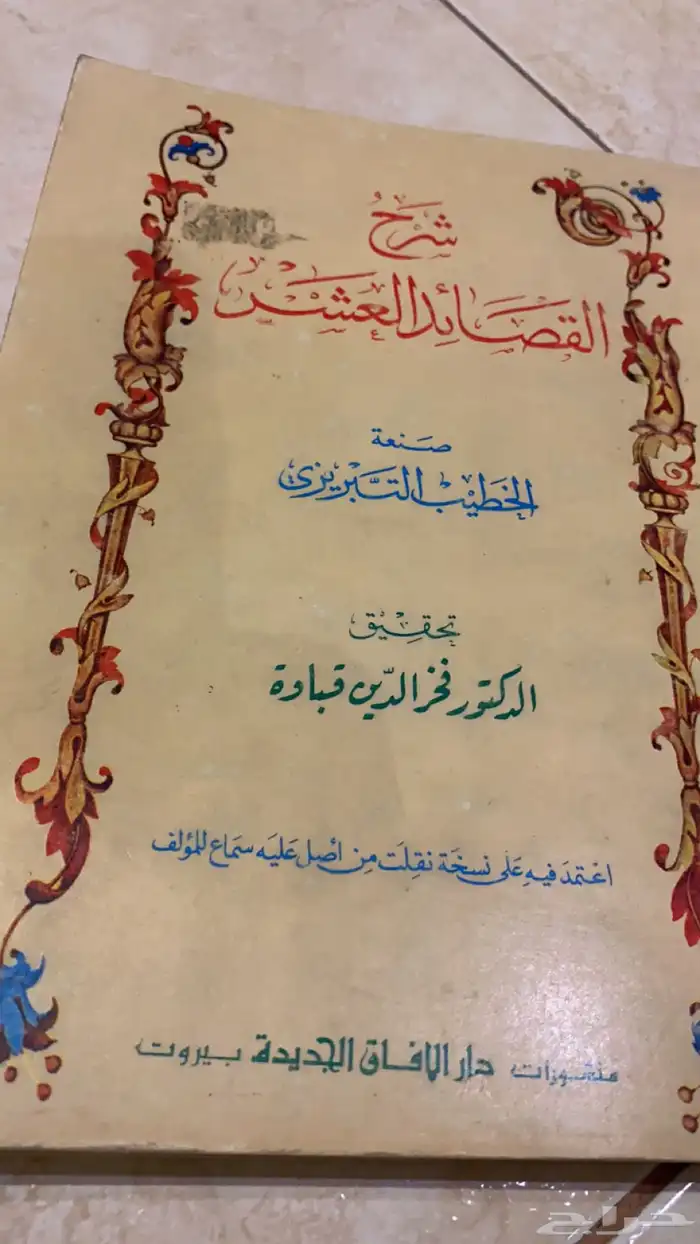 شرح
القصائد العشر
صنعة
الخطيب التبريزي
تحقيق
الدكتور فخر الدين قباوة
اعتمد فيه على نسخة نقلت من أصل عليه سماع للمؤلف
منشورات دار الآفاق الجديدة بيروت
حراج